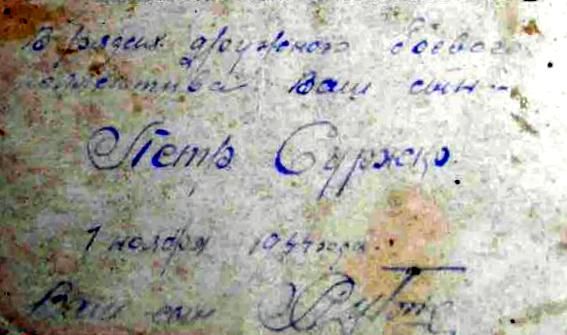 В рядах дружного боевого
коллектива Ваш сын -
Петр Суржко.
7 ноября 1944 года.
Ваш сын